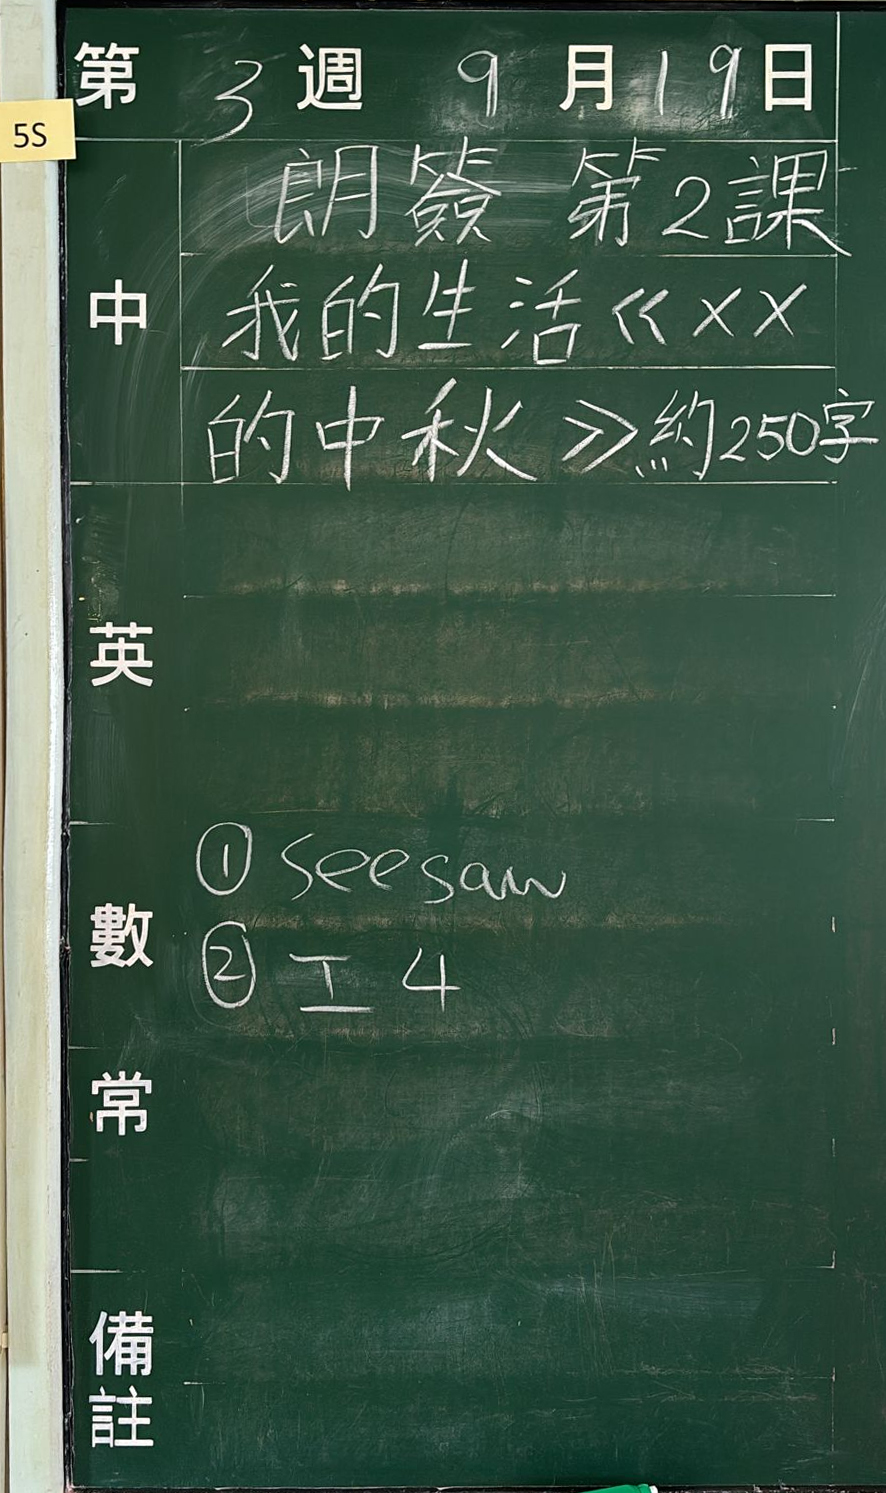 第 3 週 9 月 19 日
5S
中
朗簽 第2課
我的生活《××
的中秋》約250字
英
數
① seesaw
② 工 4
常
備註